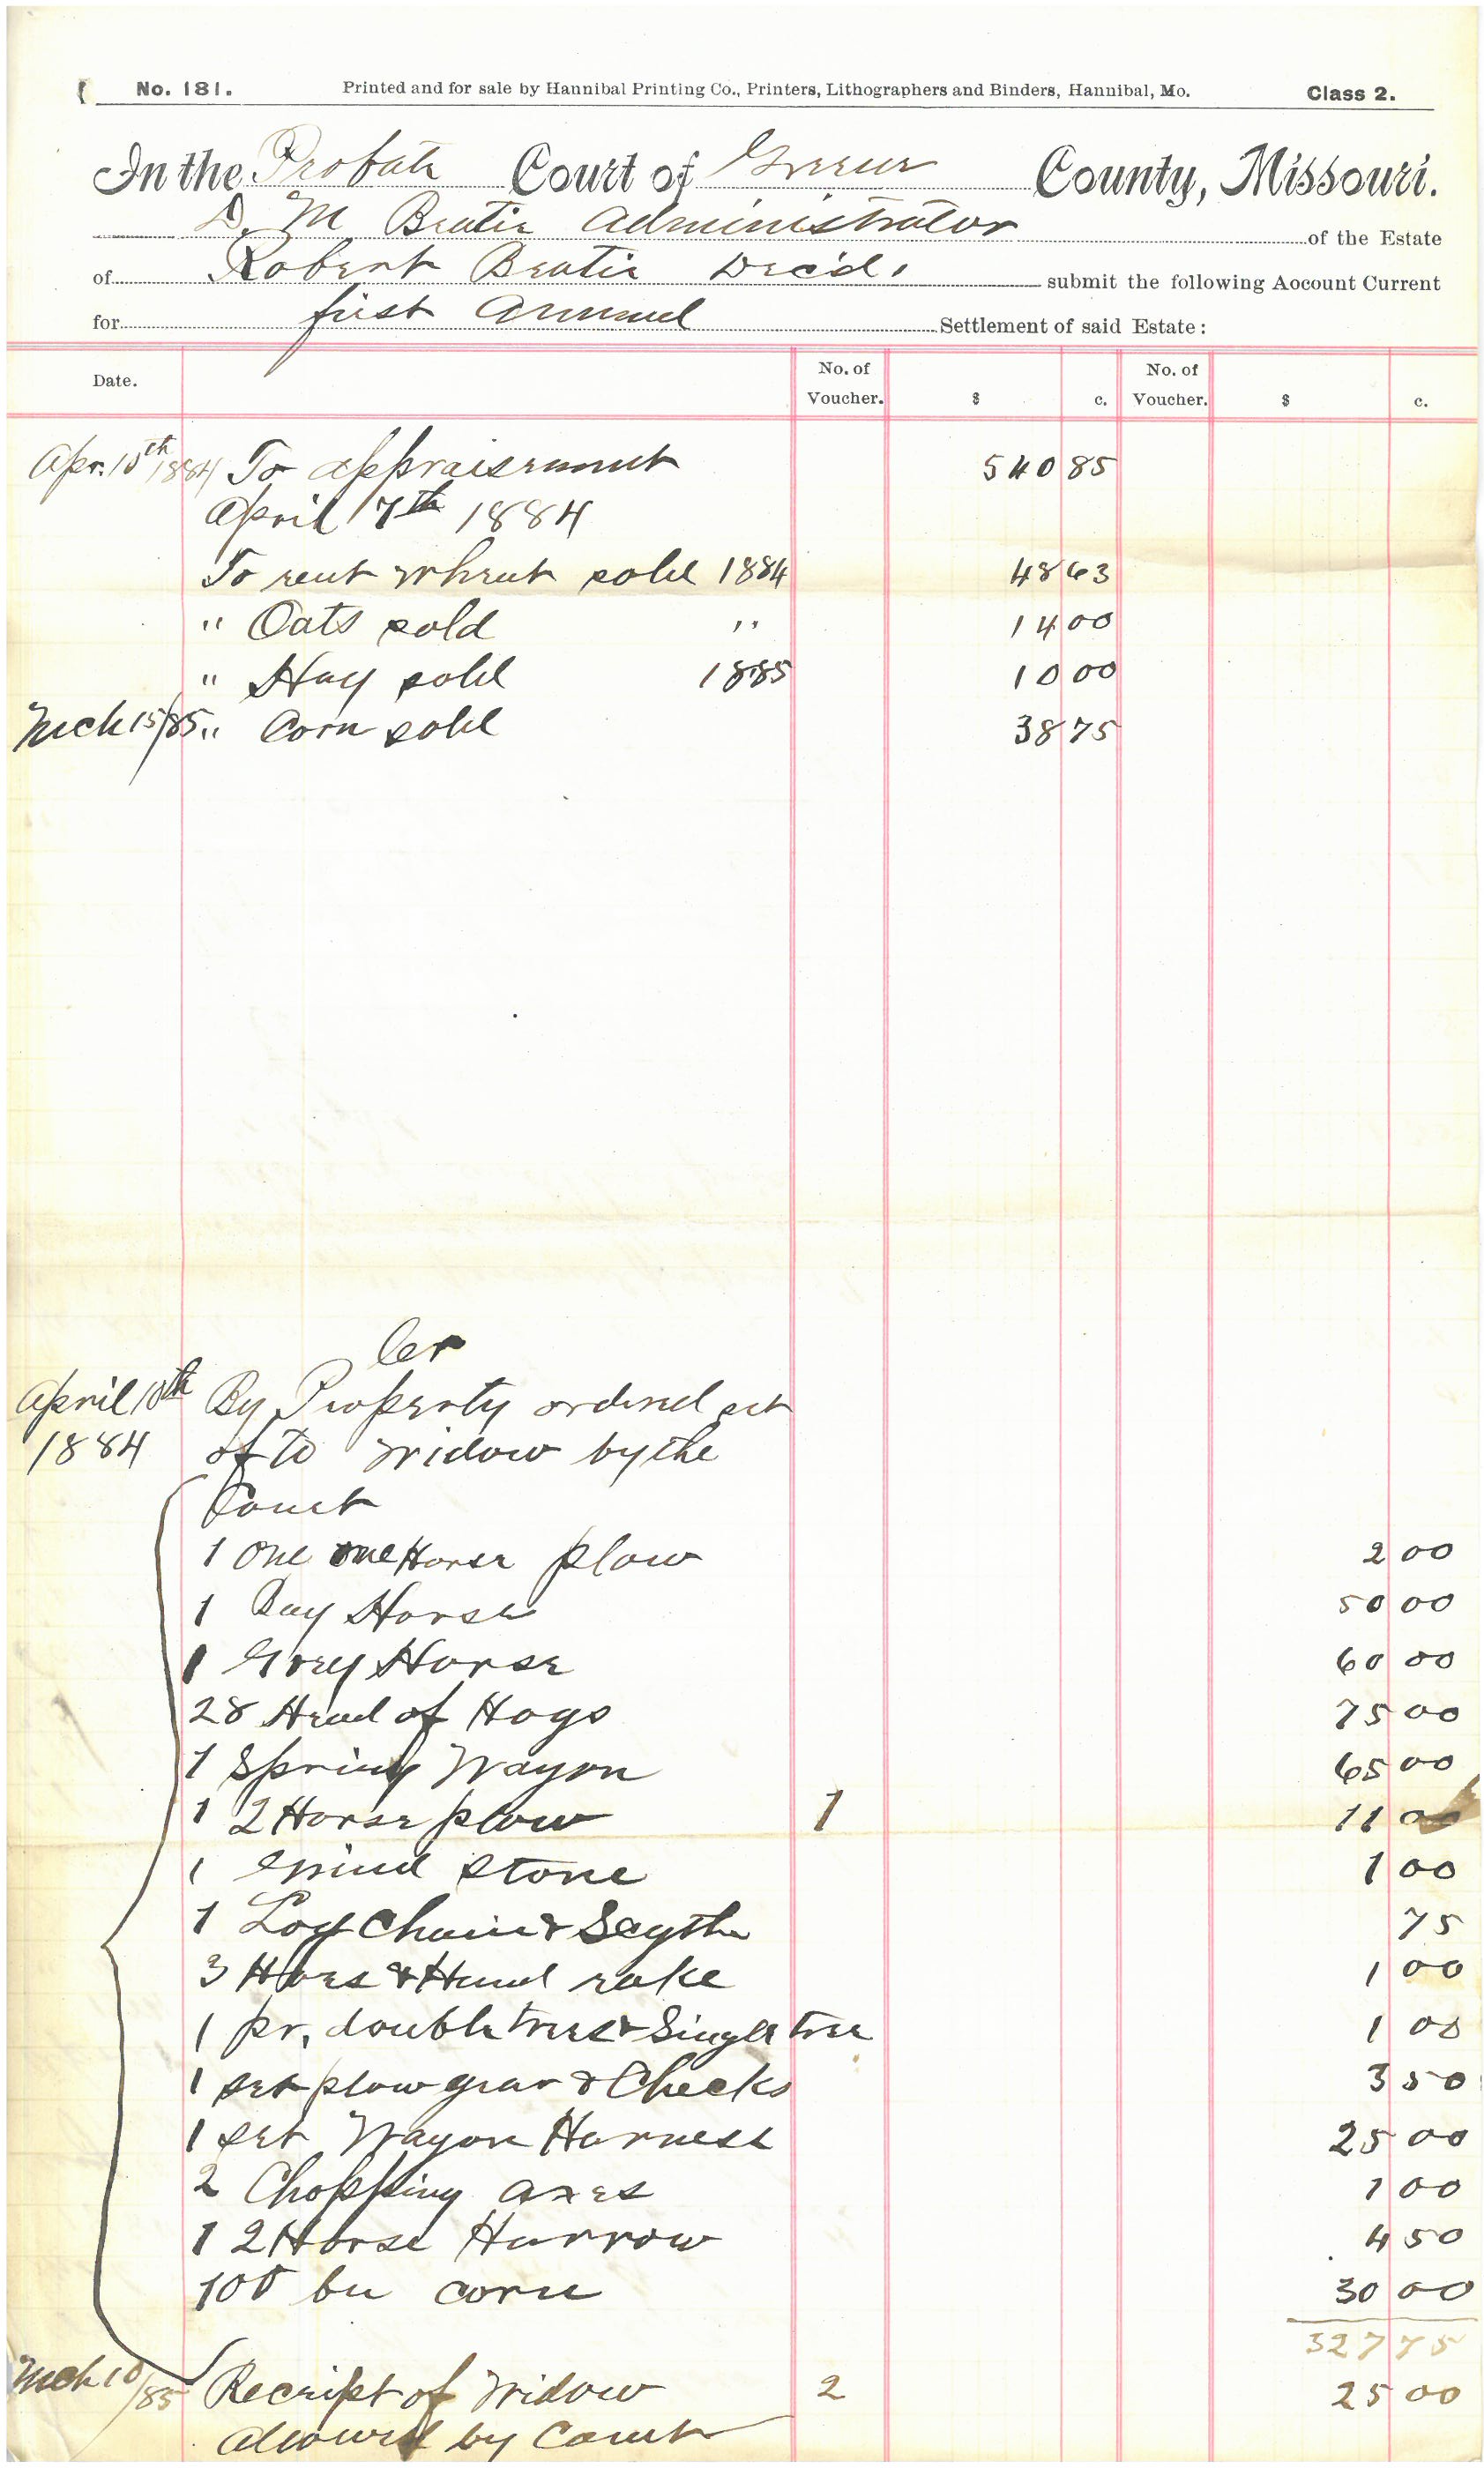 No. 181. Printed and for sale by Hannibal Printing Co., Printers, Lithographers and Binders, Hannibal, Mo. Class 2.
In the Probate Court of Greene County, Missouri.
D. M Beatie Administrator of the Estate
of Robert Beatie Dec'd. submit the following Account Current
for first Annual Settlement of said Estate:
Date. No. of Voucher. $ c. No. of Voucher. $ c.
Apr. 10th 1884 To appraisement 540 85
April 7th 1884
To rent wheat sold 1884 48 63
" Oats sold " 14 00
" Hay sold 1885 10 00
Mch 15/85 " Corn sold 38 75
Cr
April 10th By Property ordered set
1884 of to widow by the
Court
1 one one Horse plow 2 00
1 Bay Horse 50 00
1 Grey Horse 60 00
28 Head of Hogs 75 00
1 Spring Wagon 65 00
1 2 Horse plow 1 11 00
1 Grind stone 1 00
1 Log Chain & Scythe 75
3 Hoes & Hand rake 1 00
1 pr, double trees & Single tree 1 00
1 set plow gear & Checks 3 50
1 set Wagon Harness 25 00
2 Chopping axes 1 00
1 2 Horse Harrow 4 50
100 bu corn 30 00
327 75
Mch 10/85 Receipt of Widow 2 25 00
allowed by Court